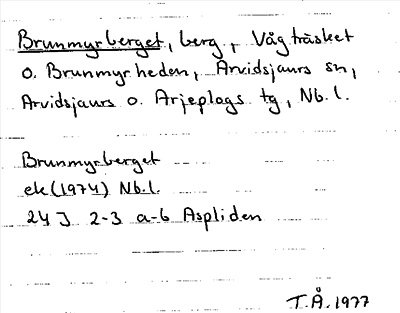 Brunmyrberget, berg, Vågträsket
o. Brunmyrheden, Arvidsjaurs sn,
Arvidsjaurs o. Arjeplogs tg, Nb.l.
Brunmyrberget
ek(1974) Nb.l.
24J 2-3 a-b Aspliden
T.Å. 1977